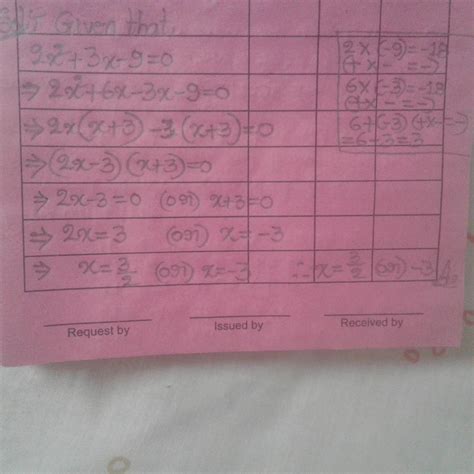 Given that,
2x²+3x-9=0
⇒ 2x²+6x-3x-9=0
⇒ 2x(x+3) -3(x+3)=0
⇒ (2x-3) (x+3)=0
⇒ 2x-3=0 (or) x+3=0
⇒ 2x=3 (or) x= -3
⇒ x=3/2 (or) x=-3 ∴ x=3/2 (or) -3
2x(-9)=-18
(+x - = -)
6x(-3)=-18
(+x - = -)
6+(-3) (+x-=-)
=6-3=3
Request by
Issued by
Received by